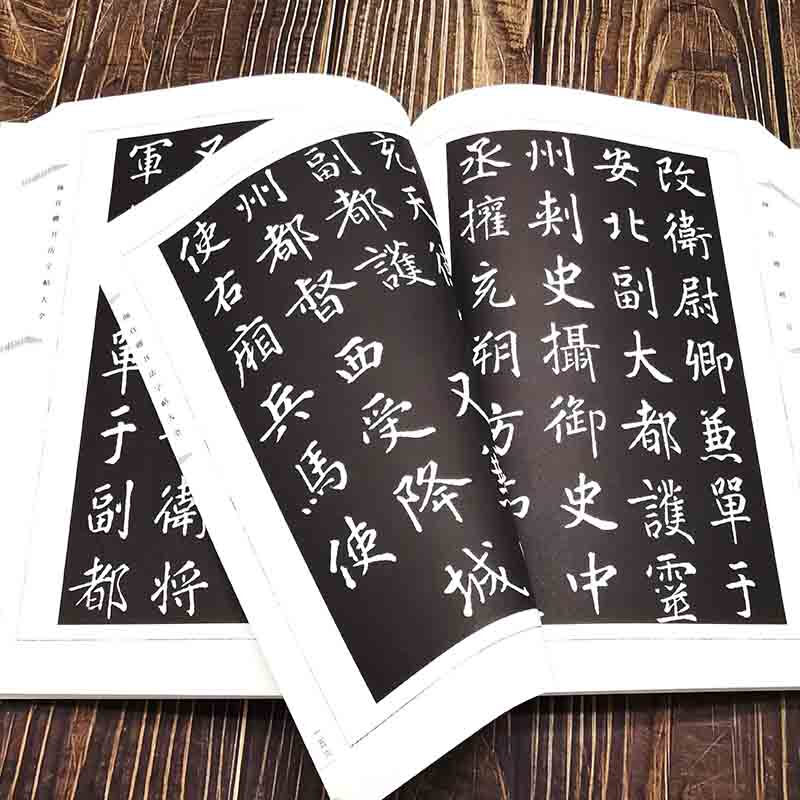 改衛尉卿兼單于
安北副大都護靈
州刺史攝御史中
丞擁充朔方
充天
副都護又
州都督西受降城
使右廂兵馬使
又衛将
軍單于副都
书法字帖大全